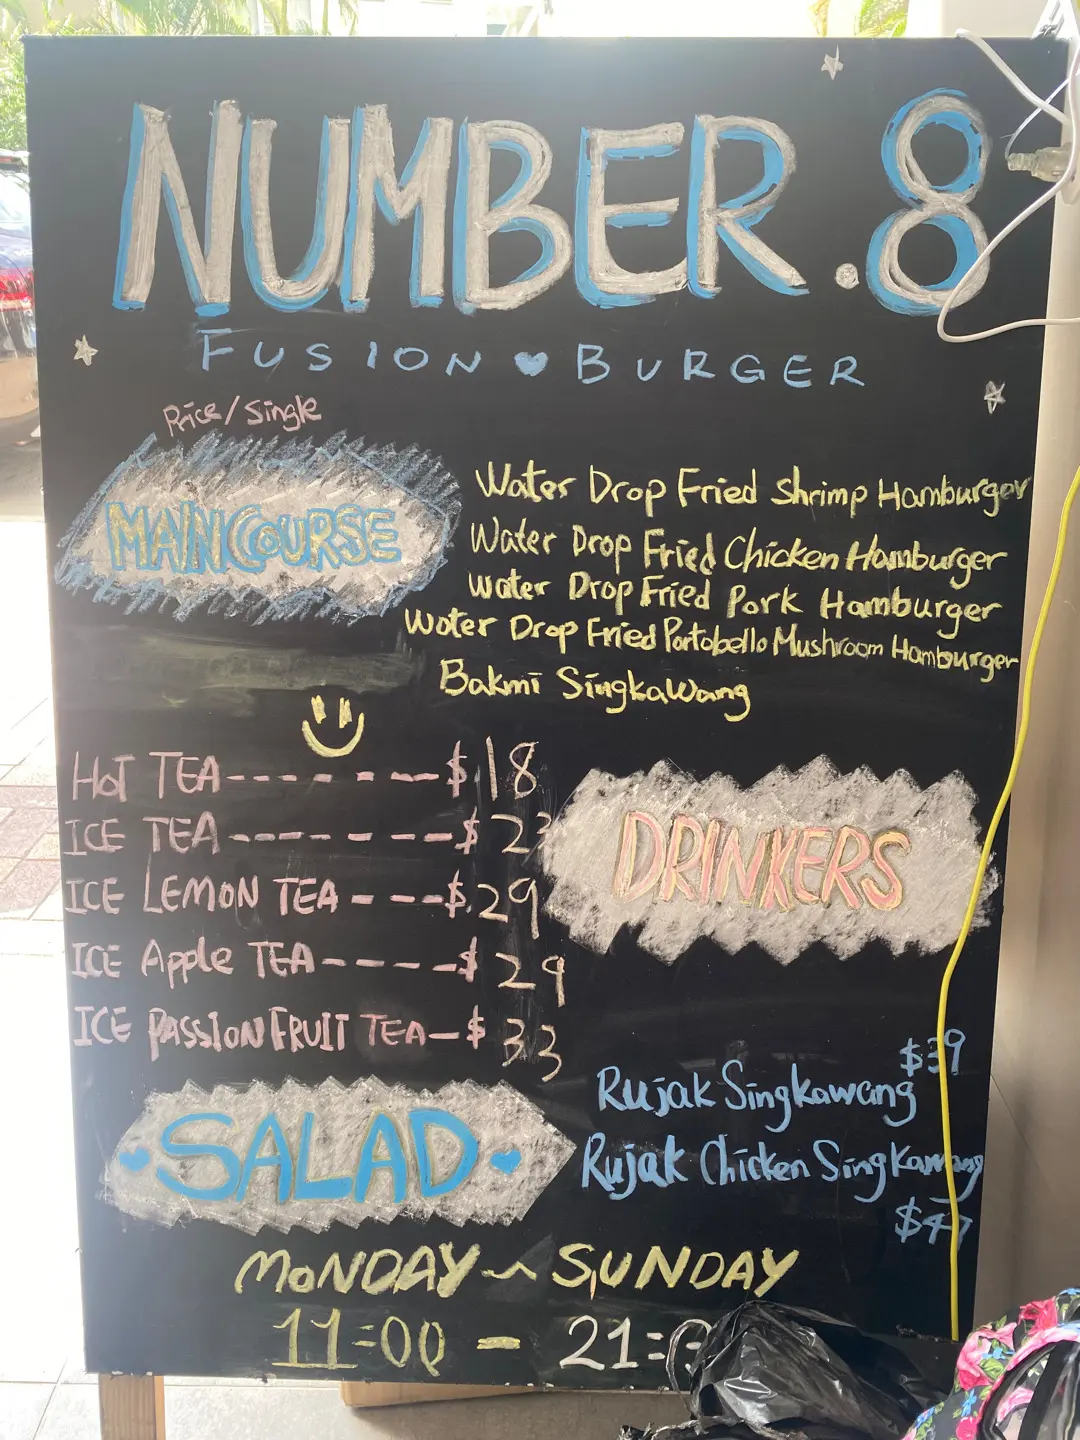 NUMBER.8
FUSION BURGER
Price/Single
MAIN COURSE
Water Drop Fried Shrimp Hamburger
Water Drop Fried Chicken Hamburger
Water Drop Fried Pork Hamburger
Water Drop Fried Portobello Mushroom Hamburger
Bakmi Singkawang
HOT TEA--------$18
ICE TEA--------$
ICE LEMON TEA----$.29
ICE Apple TEA-----$29
ICE PASSIONFRUIT TEA-$33
DRINKERS
SALAD
$39
Rujak Singkawang
Rujak Chicken Singkawang
MONDAY ~ SUNDAY
11:00 -